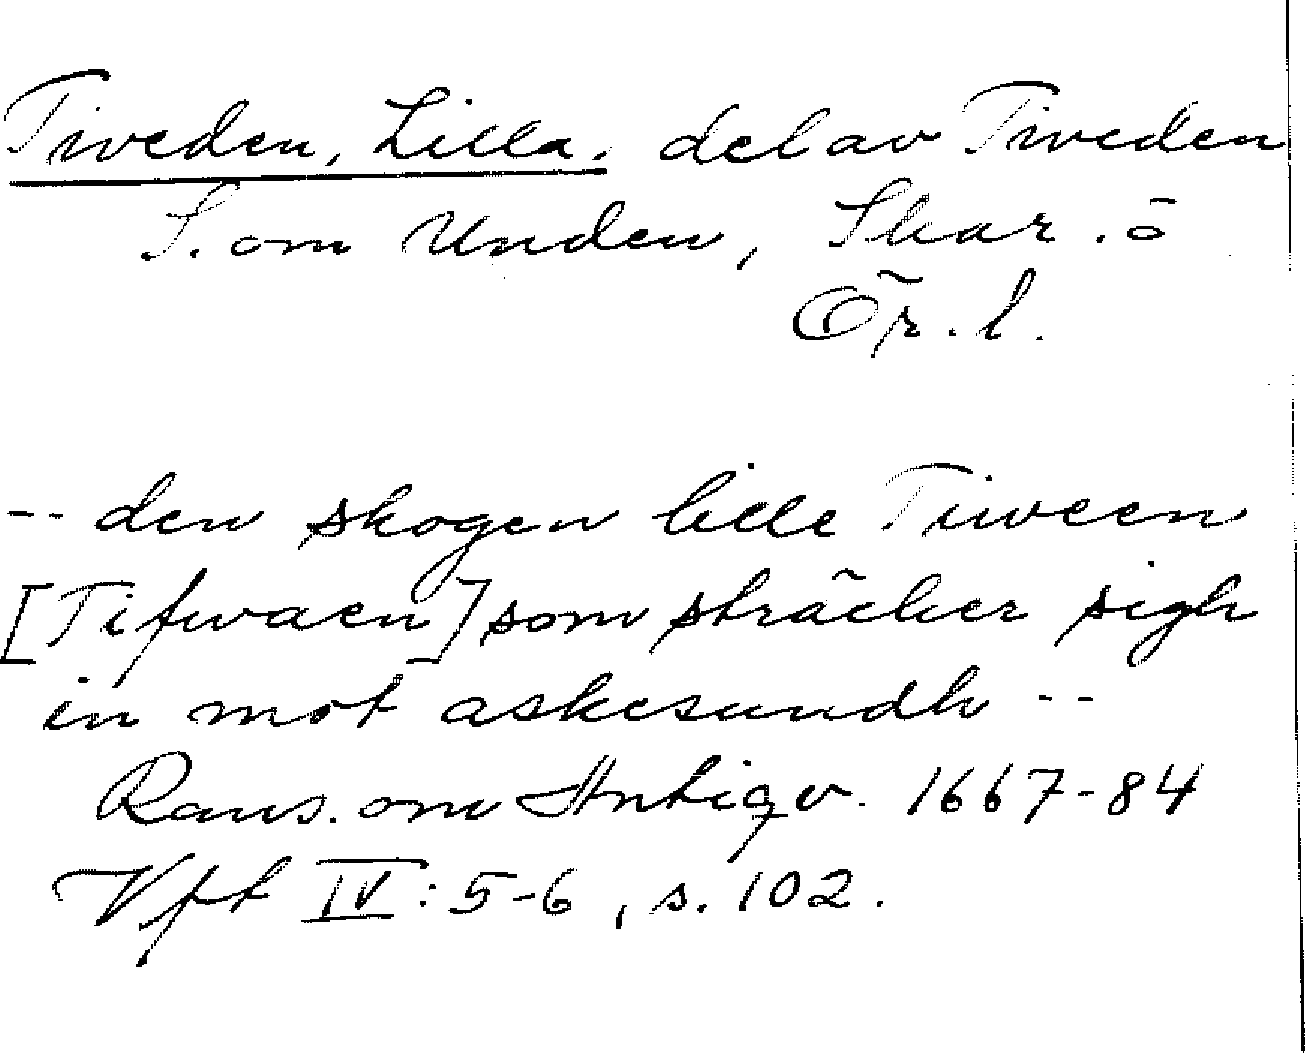 Tiveden, Lilla, del av Tiveden
S. om Unden, Skar. o
Ör. l.
-- den skogen lille Tiiween
[Tifwaen] som sträcker sigh
in mot askesundh --
Rans. om Antiqv. 1667-84
Vft IV: 5-6, s. 102.